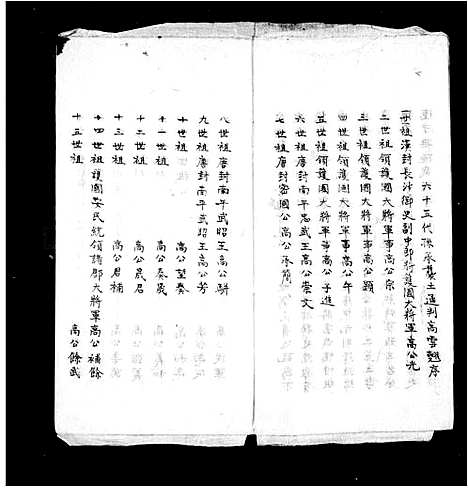 六十五代孫承務土通判高雪翹序
一世祖漢封長沙御史副中郎將護國大將軍高公光
二世祖領護國大將軍事高公宗
三世祖領護國大將軍事高公顕
四世祖領護國大將軍事高公午
五世祖領護國大將軍事高公子進
六世祖唐封南平忠武王高公崇文
七世祖唐封密國公高公承簡
八世祖唐封南平武昭王高公駢
九世祖唐封南平武昭王高公芳
十世祖 高公望奏
十一世祖 高公泰晟
十二世祖 高公晟君
十三世祖 高公君補
十四世祖護國安民統領諸郡大將軍高公補餘
十五世祖 高公餘武